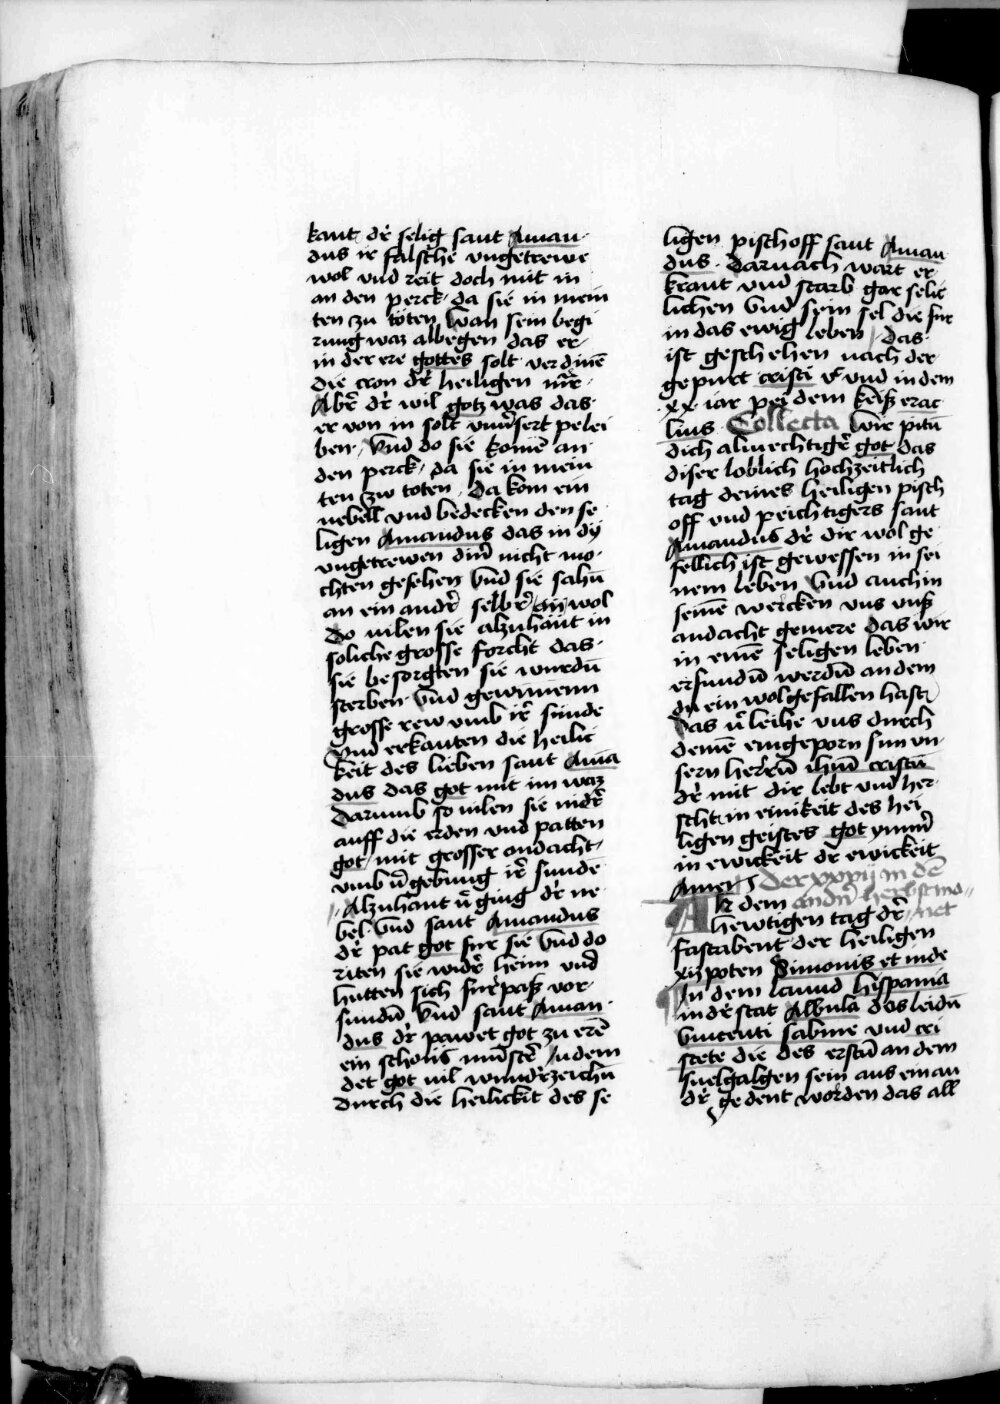 kant dr̄ selig sant Aman
dus ir falsche vngetrewe
wol vnd reit doch mit in
an den perck da sie in mein
ten zu töten wan sein begi
rung waz albegen das er
in der ere gottes solt verdinē
die cron dr̄ heiligen mr̄r
Abr̄ dr̄ wil gotz was das
er von in solt vnūsert pelei
ben Vnd do sie komē an
den perck da sie in mein
ten zw toten da kom ein
nebell vnd bedecken den se
ligen Amandus das in dy
vngetrewen din̄ nicht mo
chten gesehen Vnd sie sahn̄
an ein andr̄ selbr̄ an wol
do vilen sie alzuhant in
soliche grosse forcht das
sie besorgten sie wurdn̄
sterben Vnd gewinnenn
grosse rew vmb ir̄ sunde
Vnd erkanten die heilic
keit des lieben sant Amā
dus das got mit im waz
darumb so vilen sie nidr̄
auff die erden vnd patten
got mit grosser andacht
vmb v̄gebung ir̄ sundē
Alzuhant v̄ging dr̄ ne
bel Vnd sant Amandus
dr̄ pat got fur sie Vnd do
riten sie widr̄ heim vnd
hutten sich fur̄paß vor
sundn̄ Vnd sant Aman
dus dr̄ pawet got zu erē
ein schons mūster̄ In dem
det got vil wundr̄zeichn̄
durch die heilickit des se
ligen pischoff sant Aman
dus. Darnach wart er
krant vnd starb gar selic
lichen Vnd sein sel die fur
in das ewig leben das
ist geschehen nach der
gepurt cristi vᶜ vnd in dem
xx iar pei dem keiß erac
lius Collecta Wir pitn̄
dich almechtigr̄ got das
diser loblich hochzeitlich
tag deines heiligen pisch
off vnd peichtigers sant
Amandus dr̄ dir wol ge
fellich ist gewessen in sei
nem leben Vnd auch in
seinē wercken vns vnß
andacht gemere das wir
in einē seligen leben
erfundn̄ werdn̄ an dem
du ein wolgefallen hast
Das v̄leihe vns durch
deinē eingeporn sun vn
sern herrn̄ ihm̄ cristū
dr̄ mit dir lebt vnd her
scht in einikeit des hei
ligen geistes got ymm̄
in ewickeit dr̄ ewickeit
Amen Der xxvij in dē
An dem andn̄ herbstmo
hewtigen tag dr̄ net
fastabent der heiligen
xij poten Simonis et iude
In dem lannd hispania
in dr̄ stat Albula das leidn̄
Vincenti sabine vnd cri
stete die des erstn̄ an dem
snelgalgen sein aus einan
dr̄ gedent worden das all